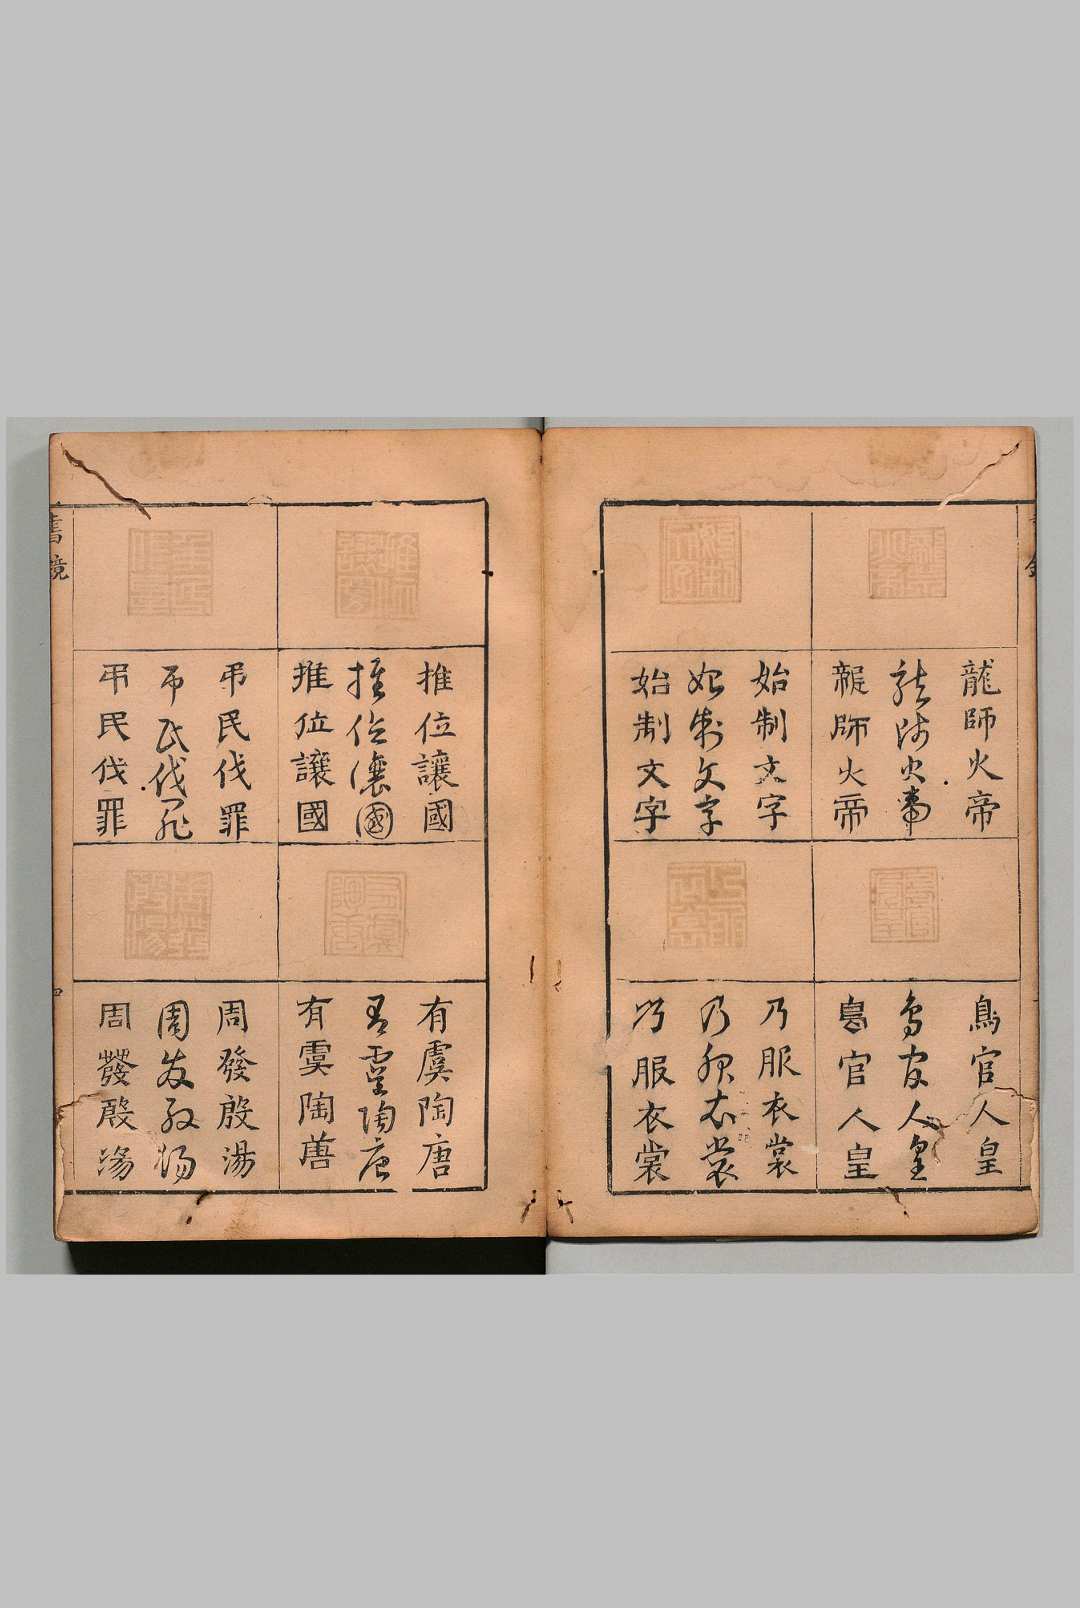 龍師火帝
龍師火帝
龍師火帝
始制文字
始制文字
始制文字
鳥官人皇
鳥官人皇
鳥官人皇
乃服衣裳
乃服衣裳
乃服衣裳
推位讓國
推位讓國
推位讓國
弔民伐罪
弔民伐罪
弔民伐罪
有虞陶唐
有虞陶唐
有虞陶唐
周發殷湯
周發殷湯
周發殷湯
書鏡
四